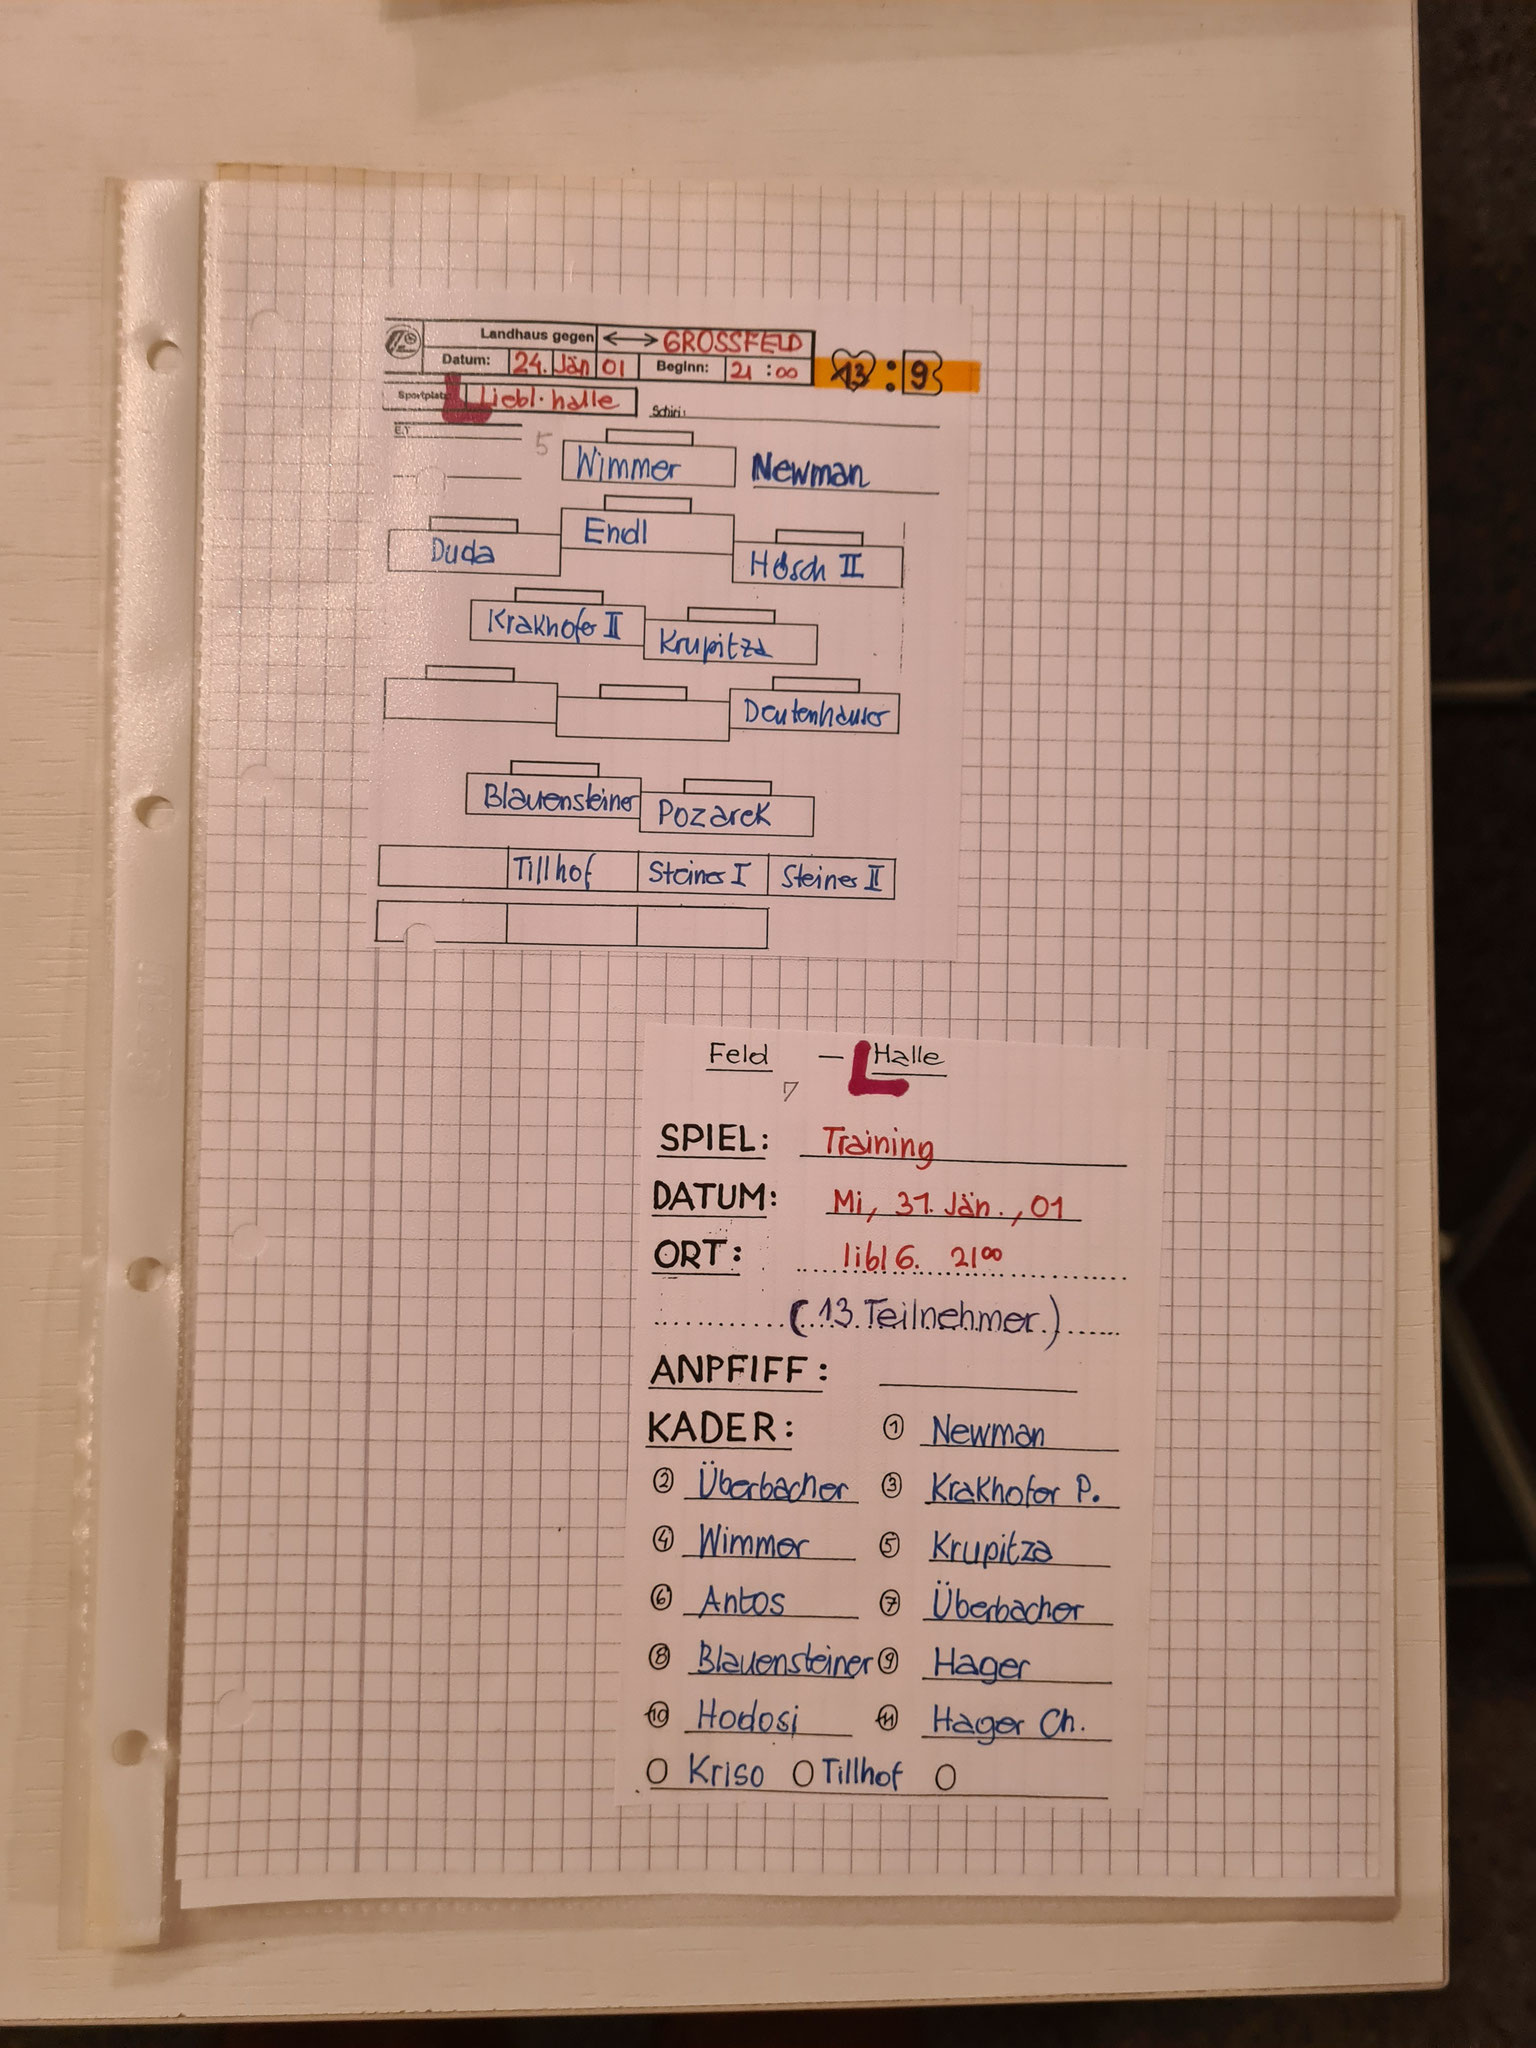 Landhaus gegen ←→ GROSSFELD
Datum: 24. Jän 01 Beginn: 21 : 00 13 : 9
Sportplatz Liebl. halle Schiri:
E.T
5 Wimmer Newman
Endl
Duda Hösch II
Krakhofer II Krupitza
Deutenhauser
Blauensteiner Pozarek
Tillhof Steiner I Steiner II
Feld – L Halle
7
SPIEL: Training
DATUM: Mi, 31. Jän., 01
ORT: libl G. 21 00
(13 Teilnehmer)
ANPFIFF:
KADER: 1 Newman
2 Überbacher 3 Krakhofer P.
4 Wimmer 5 Krupitza
6 Antos 7 Überbacher
8 Blauensteiner 9 Hager
10 Hodosi 11 Hager Ch.
Kriso Tillhof